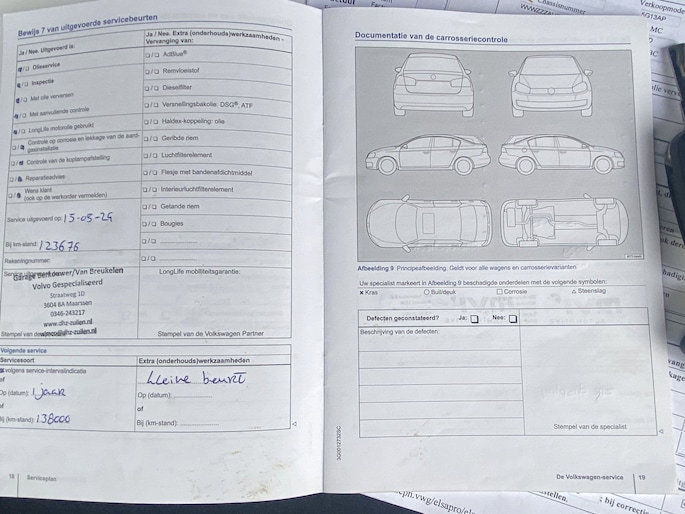 Bewijs 7 van uitgevoerde servicebeurten
Ja / Nee. Uitgevoerd is:
Olieservice
Inspectie
Met olie verversen
Met aanvullende controle
LongLife motorolie gebruikt
Controle op corrosie en lekkage van de aard-
gasinstallatie
Controle van de koplampafstelling
Reparatieadvies:
Wens klant
(ook op de werkorder vermelden)
Service uitgevoerd op: 15-05-24
Bij km-stand: 123676
Rekeningnummer:
Garage Berkouwer/Van Breukelen
Volvo Gespecialiseerd
Straatweg 10
3604 BA Maarssen
0346-243217
www.dhz-zuilen.nl
Stempel van de
Ja / Nee. Extra (onderhouds)werkzaamheden -
Vervanging van:
❑ / ❑ AdBlue®
❑ / ❑ Remvloeistof
❑ / ❑ Dieselfilter
❑ / ❑ Versnellingsbakolie: DSG®, ATF
❑ / ❑ Haldex-koppeling: olie
❑ / ❑ Geribde riem
❑ / ❑ Luchtfilterelement
❑ / ❑ Flesje met bandenafdichtmiddel
❑ / ❑ Interieurluchtfilterelement
❑ / ❑ Getande riem
❑ / ❑ Bougies
❑ / ❑
❑ / ❑
LongLife mobiliteitsgarantie:
Stempel van de Volkswagen Partner
Volgende service
Servicesoort
volgens service-intervalindicatie
of
Op (datum): 1 jaar
of
Bij (km-stand): 138000
Extra (onderhouds)werkzaamheden
kleine beurt
Op (datum):
of
Bij (km-stand):
18 Serviceplan
Documentatie van de carrosseriecontrole
Afbeelding 9 Principeafbeelding. Geldt voor alle wagens en carrosserievarianten.
Uw specialist markeert in Afbeelding 9 beschadigde onderdelen met de volgende symbolen:
× Kras ○ Buil/deuk □ Corrosie △ Steenslag
Defecten geconstateerd? Ja: ❑ Nee: ❑
Beschrijving van de defecten:
Stempel van de specialist
De Volkswagen-service 19
Chassisnummer
Verkoopmode
5G13AP
MC